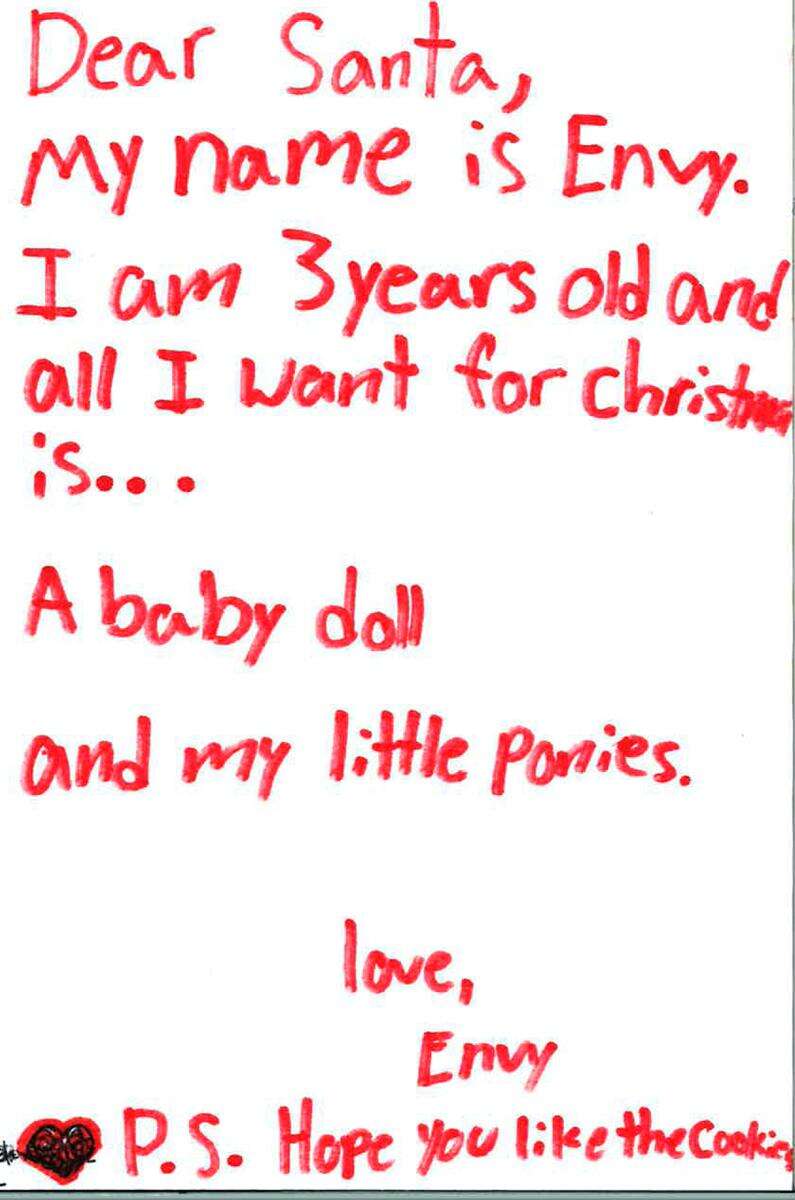 Dear Santa,
My name is Envy.
I am 3 years old and
all I want for christmas
is...
A baby doll
and my little ponies.
love,
Envy
P.S. Hope you like the Cookies